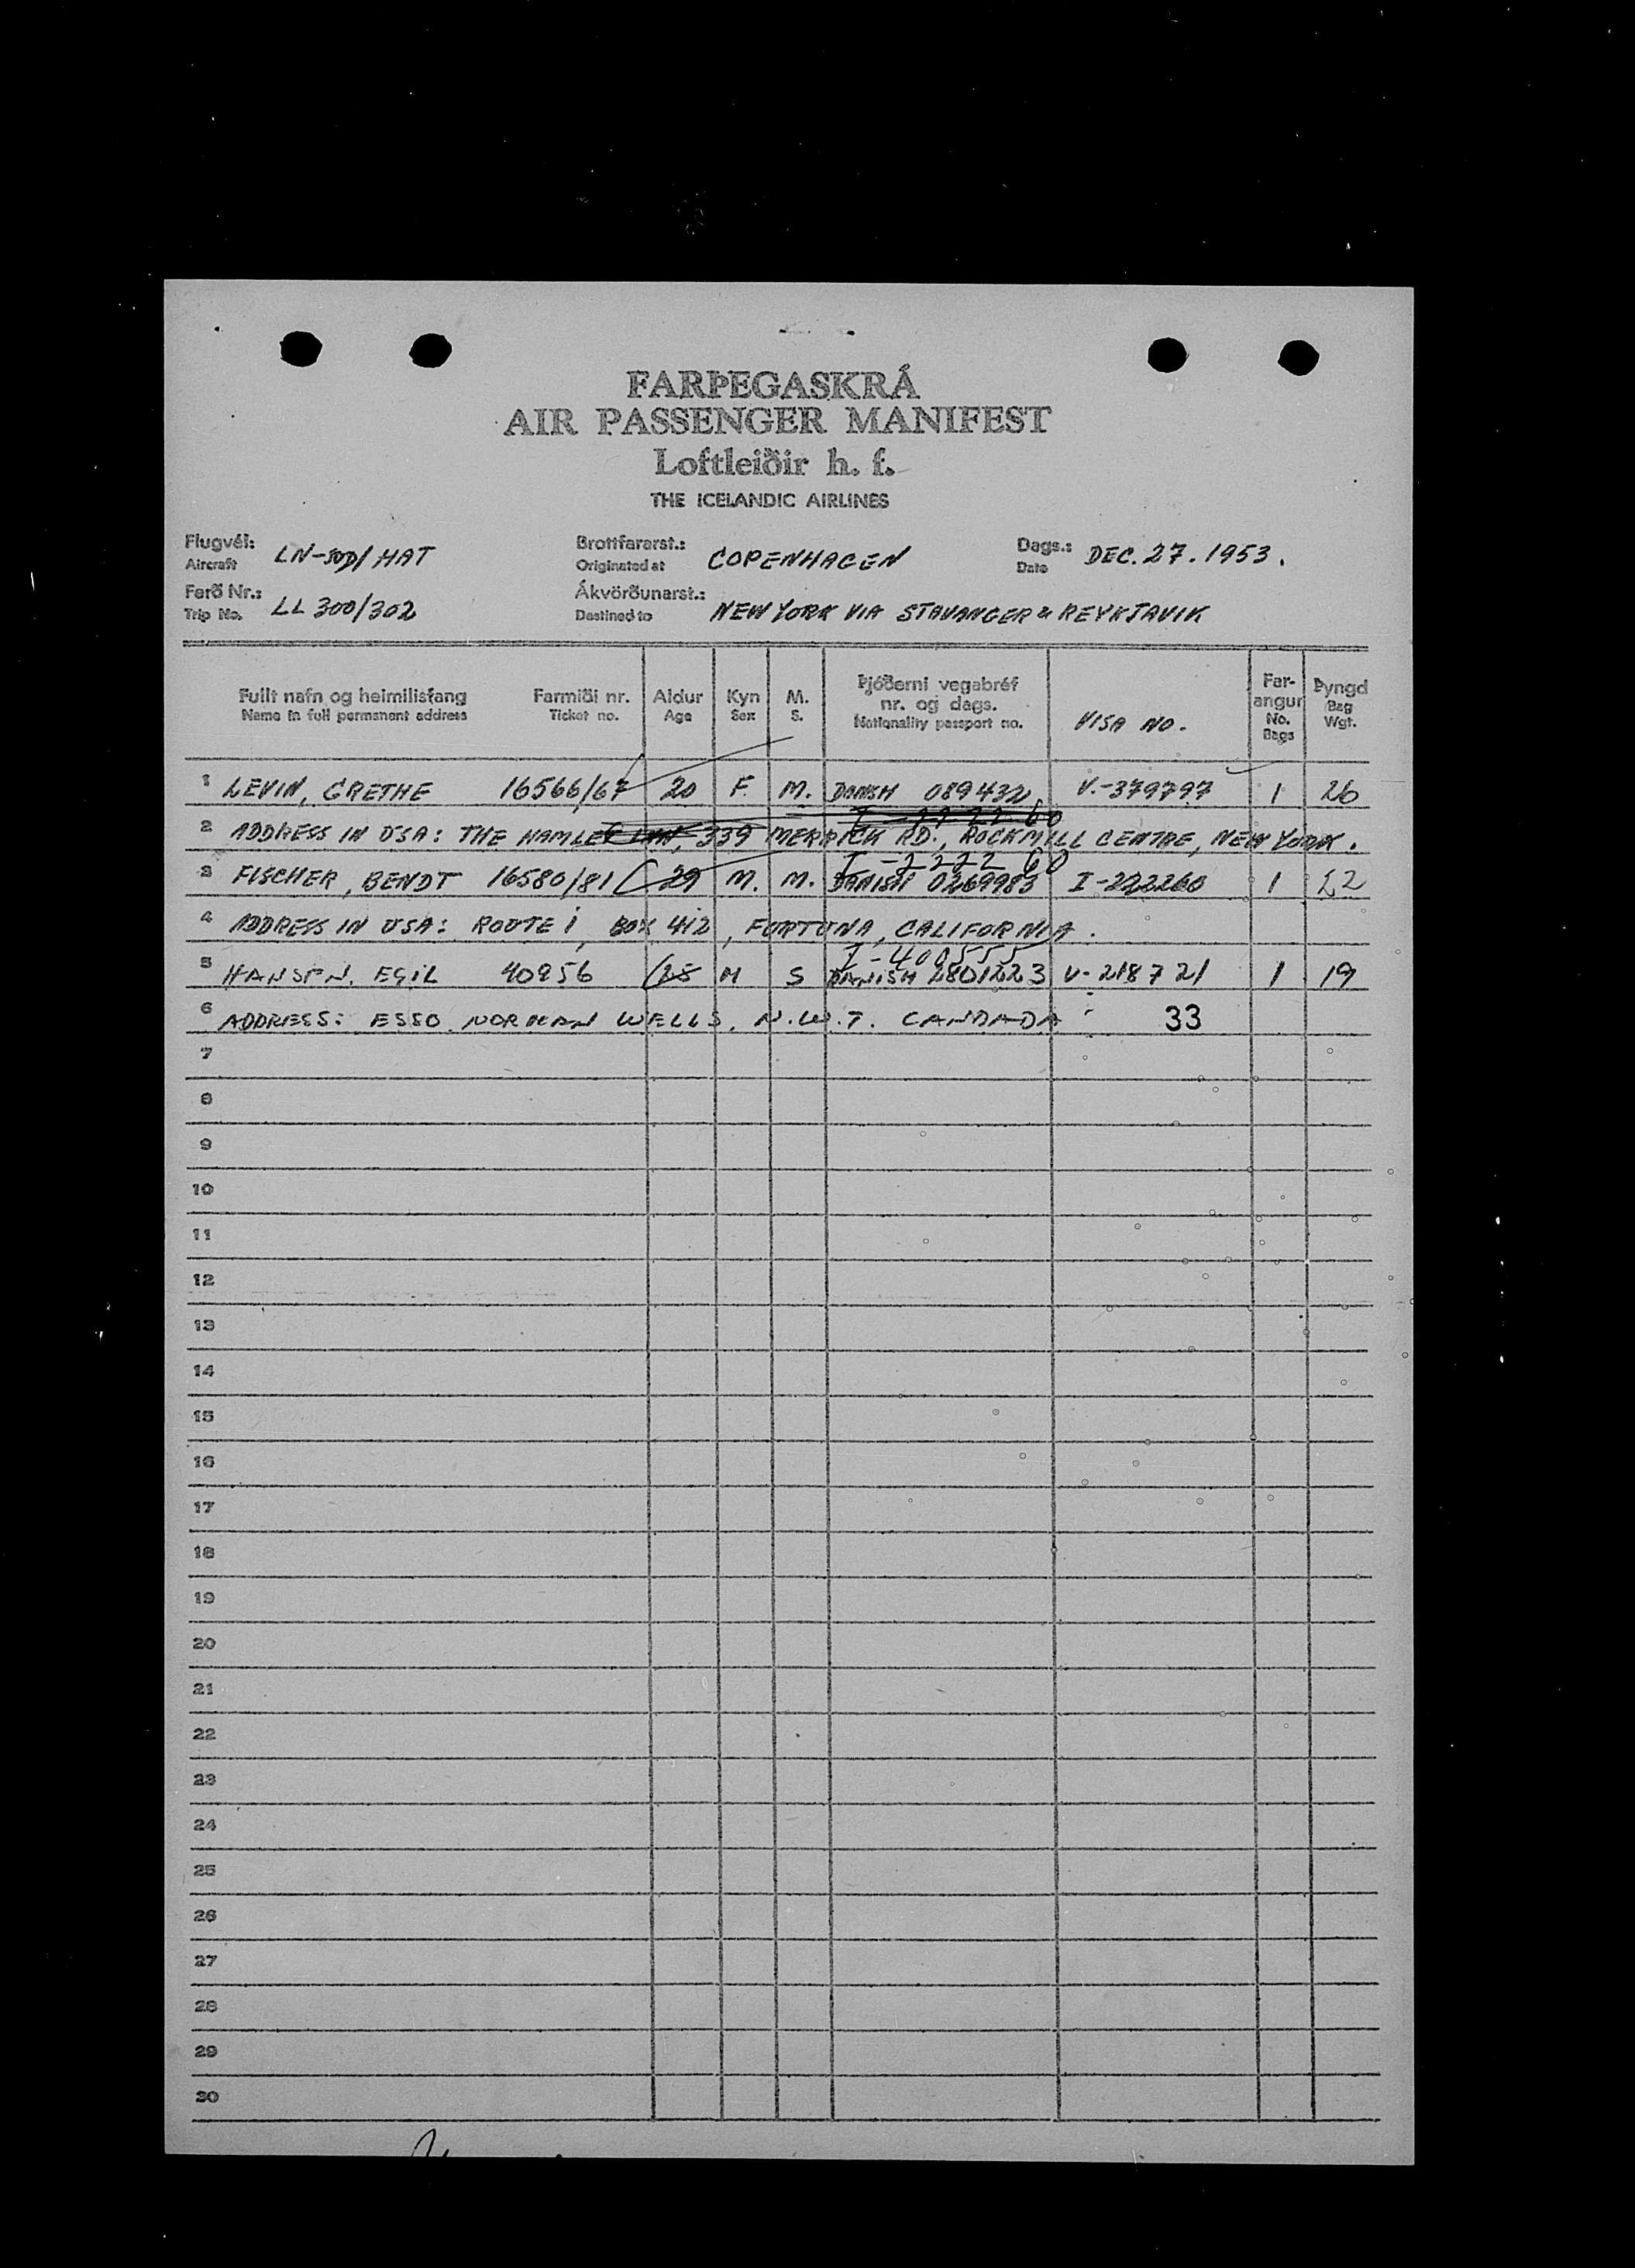 FARÞEGASKRÁ
AIR PASSENGER MANIFEST
Loftleiðir h. f.
THE ICELANDIC AIRLINES
Flugvél: LN-SUD/HAT Brottfararst.: COPENHAGEN Dags.: DEC. 27. 1953.
Aircraft Originated at Date
Ferð Nr.: LL 300/302 Ákvörðunarst.: NEW YORK VIA STAVANGER & REYKJAVIK
Trip No. Destined to
Fullt nafn og heimilisfang Farmiði nr. Aldur Kyn M. Þjóðerni vegabréf nr. og dags. VISA NO. Far-angur Þyngd
Name in full permanent address Ticket no. Age Sex S. Nationality passport no. No. Bags Bag Wgt.
1 LEVIN, GRETHE 16566/67 20 F. M. DANSH 089432 V.-379797 1 26
2 ADDRESS IN USA: THE HAMLET INN, 339 MERRICK RD., ROCKMILL CENTRE, NEW YORK.
I-222260
3 FISCHER, BENDT 16580/81 29 M. M. DANISH 0269983 I-222260 1 22
4 ADDRESS IN USA: ROUTE 1, BOX 412, FORTUNA, CALIFORNIA.
I-400555
5 HANSEN, EGIL 40956 28 M S DANISH 2801223 V-218721 1 19
6 ADDRESS: ESSO NORMAN WELLS, N.W.T. CANDADA 33
7
8
9
10
11
12
13
14
15
16
17
18
19
20
21
22
23
24
25
26
27
28
29
30